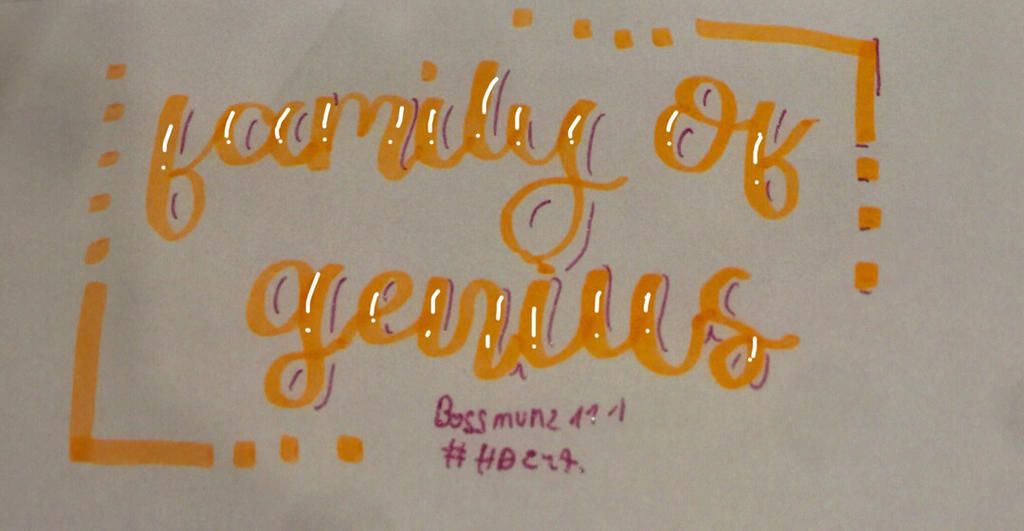 family of
genius
Bossmunz 111